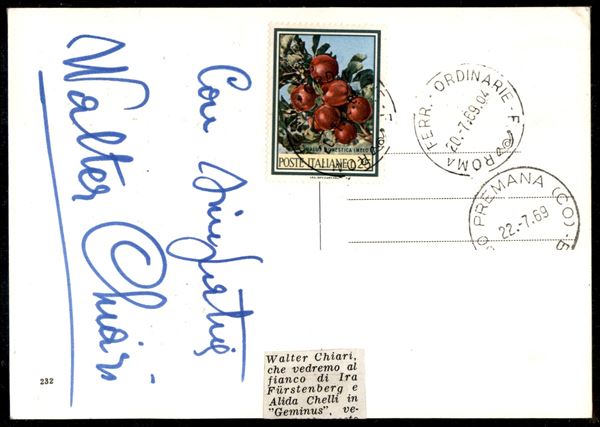 Con simpatia
Walter Chiari
MALUS DOMESTICA (MELO)
POSTE ITALIANE L. 25
ROMA FERR. - ORDINARIE F.
20.-7.69.04
PREMANA (CO)
22.-7.69
232
Walter Chiari,
che vedremo al
fianco di Ira
Fürstenberg e
Alida Chelli in
"Geminus", ve-